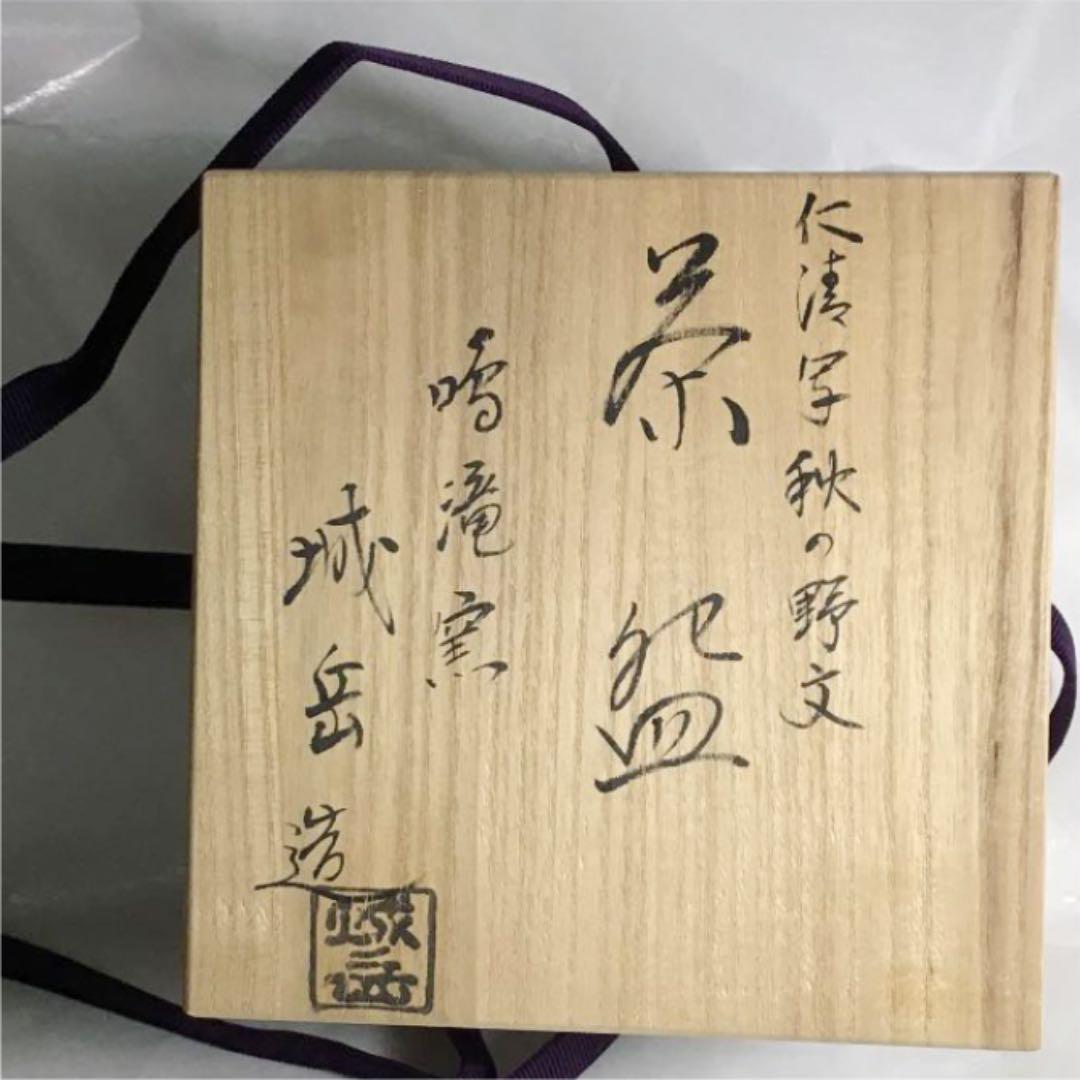 仁清写秋の野文
茶盌
鳴滝窯
城岳造
城岳